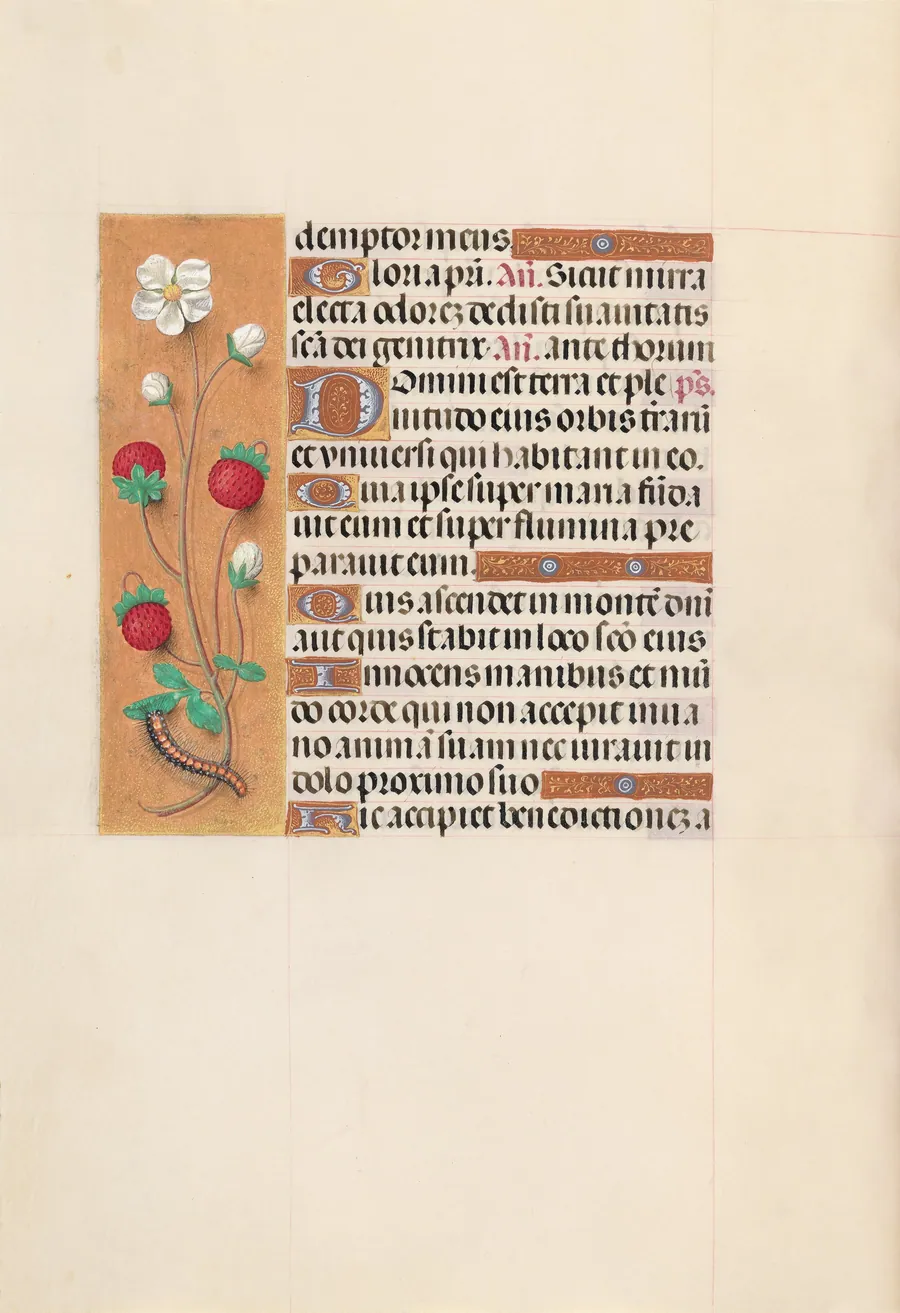 demptor meus.
Gloria pr̃i. Añ. Sicut mirra
electa odoreꝫ dedisti suauitatis
scã dei genitrix. Añ. ante thorum
Domini est terra et ple ps.
nitudo eius orbis trãrũ
et vniuersi qui habitant in eo.
Quia ipse super maria fũda
uit eum et super flumina pre
parauit eum.
Quis ascendet in montẽ dñi
aut quis stabit in loco scõ eius
Innocens manibus et mũ
do corde qui non accepit in ua
no animã suam nec iurauit in
dolo proximo suo
Hic accipiet benedictioneꝫ a